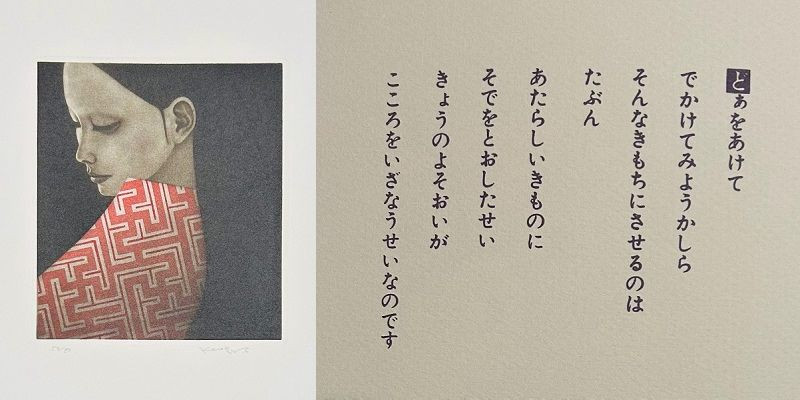 どぁをあけて
でかけてみようかしら
そんなきもちにさせるのは
たぶん
あたらしいきものに
そでをとおしたせい
きょうのよそおいが
こころをいざなうせいなのです